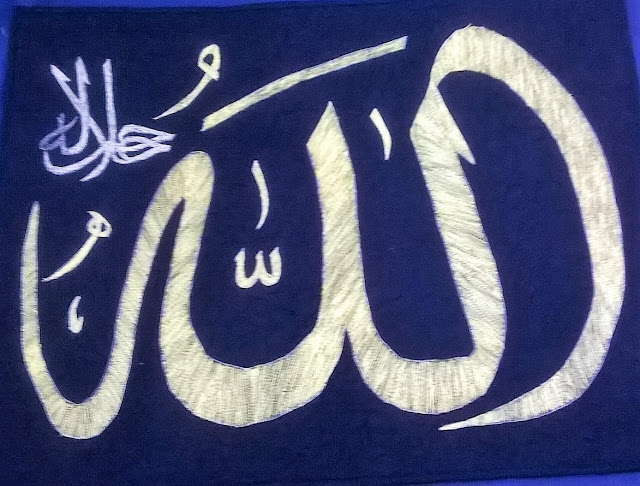 اللّٰهُ
جلاله